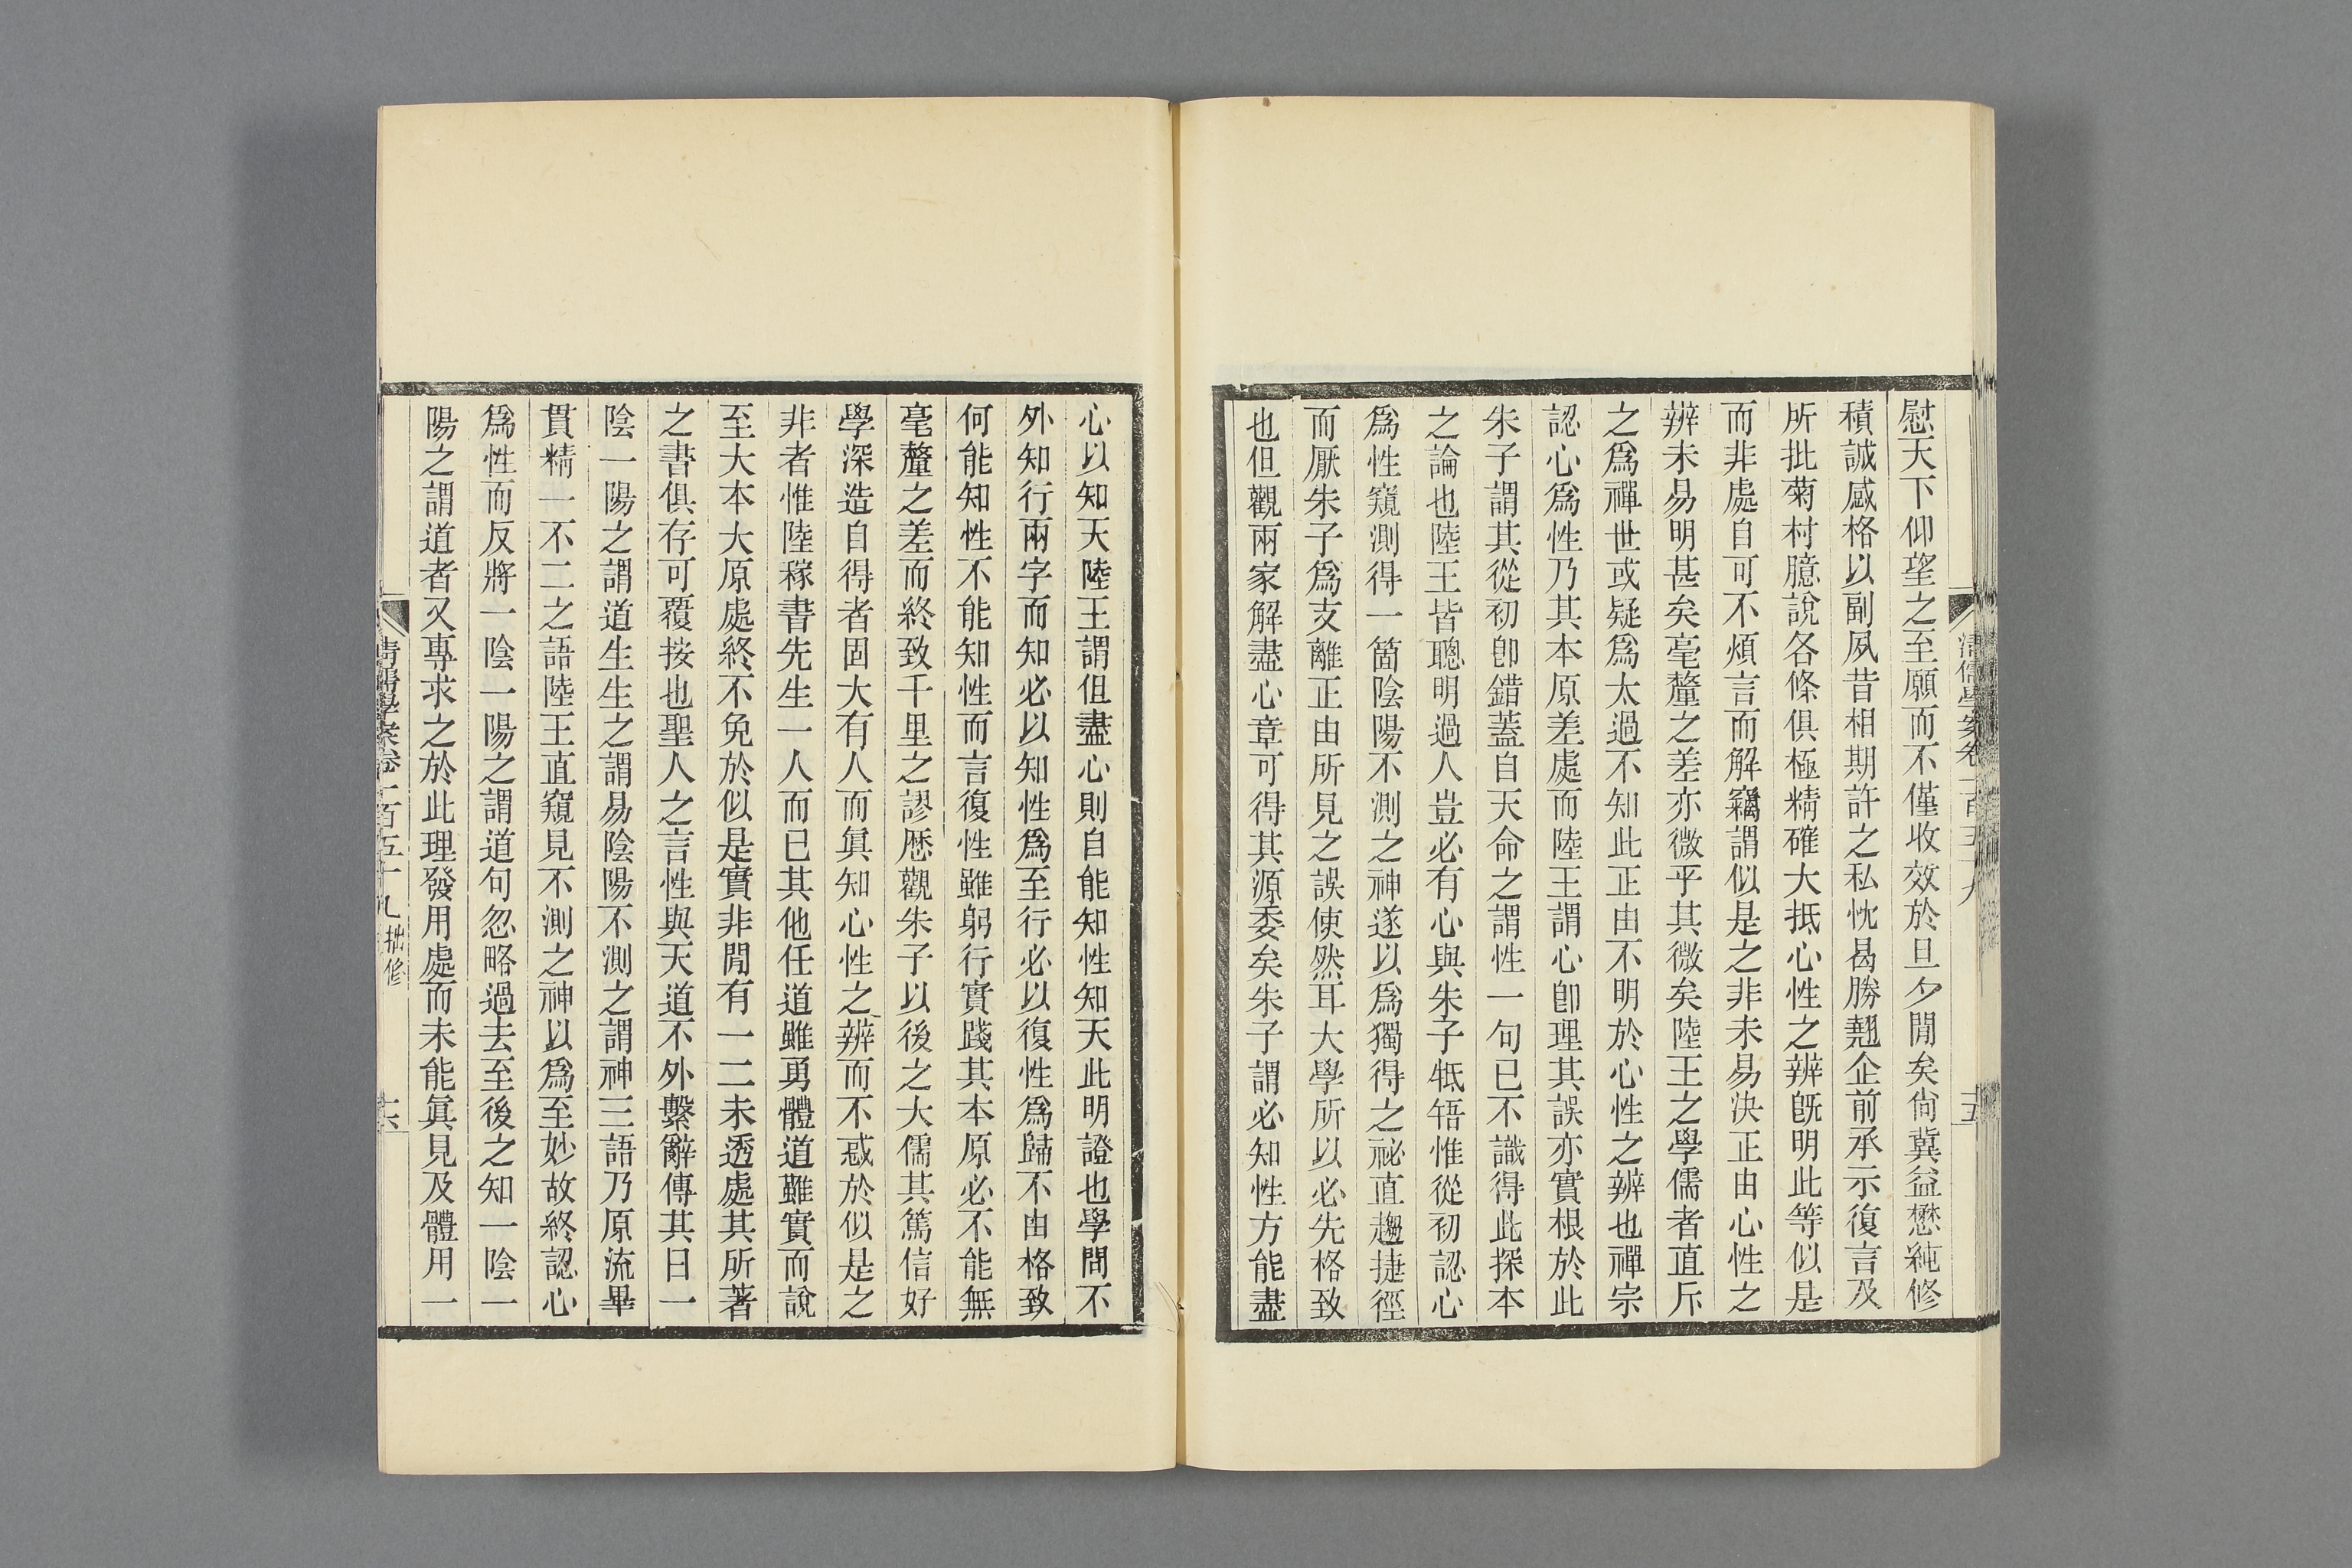 慰天下仰望之至願而不僅收效於旦夕閒矣尙冀益懋純修
積誠感格以副夙昔相期許之私忱曷勝翹企前承示復言及
所批菊村臆說各條俱極精確大抵心性之辨旣明此等似是
而非處自可不煩言而解竊謂似是之非未易決正由心性之
辨未易明甚矣毫釐之差亦微乎其微矣陸王之學儒者直斥
之爲禪世或疑爲太過不知此正由不明於心性之辨也禪宗
認心爲性乃其本原差處而陸王謂心卽理其誤亦實根於此
朱子謂其從初卽錯蓋自天命之謂性一句已不識得此探本
之論也陸王皆聰明過人豈必有心與朱子牴牾惟從初認心
爲性窺測得一箇陰陽不測之神遂以爲獨得之祕直趨捷徑
而厭朱子爲支離正由所見之誤使然耳大學所以必先格致
也但觀兩家解盡心章可得其源委矣朱子謂必知性方能盡
清儒學案卷一百五十九
十五
心以知天陸王謂但盡心則自能知性知天此明證也學問不
外知行兩字而知必以知性爲至行必以復性爲歸不由格致
何能知性不能知性而言復性雖躬行實踐其本原必不能無
毫釐之差而終致千里之謬歷觀朱子以後之大儒其篤信好
學深造自得者固大有人而眞知心性之辨而不惑於似是之
非者惟陸稼書先生一人而已其他任道雖勇體道雖實而說
至大本大原處終不免於似是實非閒有一二未透處其所著
之書俱存可覆按也聖人之言性與天道不外繫辭傳其曰一
陰一陽之謂道生生之謂易陰陽不測之謂神三語乃原流畢
貫精一不二之語陸王直窺見不測之神以爲至妙故終認心
爲性而反將一陰一陽之謂道句忽略過去至後之知一陰一
陽之謂道者又專求之於此理發用處而未能眞見及體用一
清儒學案卷一百五十九 拙修
十六